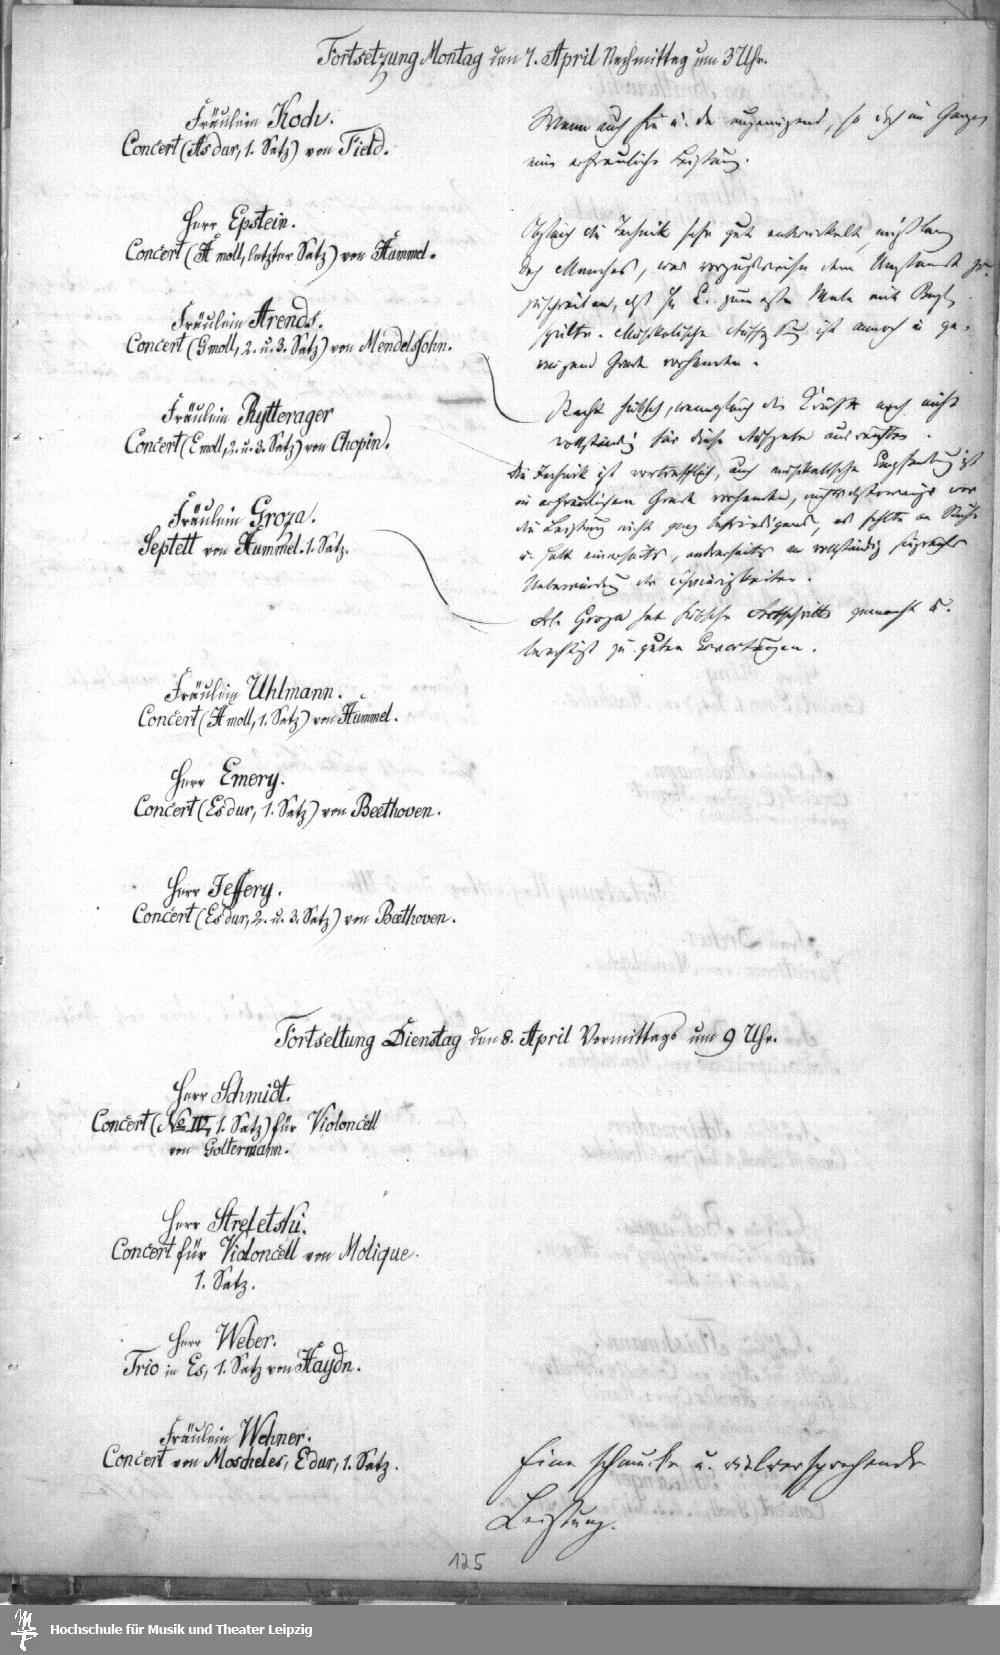 Fortsetzung Montag den 7. April Nachmittag um 3 Uhr.
Fräulein Koch.
Concert (As dur, 1. Satz) von Field.
Wenn auch hie u. da ungenügend, so doch im Ganzen
eine erfreuliche Leistung.
Herr Epstein.
Concert (A moll, letzter Satz) von Hummel.
Obgleich die Technik sehr gut entwickelt, mißlang
doch Manches, was vorzugsweise dem Umstande
zuzuschreiben, daß Hr. E. zum ersten Male mit Begl.
spielte. Musikalische Auffassung ist annoch in
Grade vorhanden.
Fräulein Arends.
Concert (G moll, 2. u. 3. Satz) von Mendelssohn.
Recht hübsch, wenngleich die Kräfte noch nicht
vollständig für diese Aufgabe ausreichten.
Fräulein Rytterager
Concert (E moll, 2. u. 3. Satz) von Chopin.
Die Technik ist vortrefflich, auch musikalische Empfindung ist
in erfreulichem Grade vorhanden, nichtsdestoweniger war
die Leistung nicht ganz befriedigend, es fehlte an Ruhe
u. einerseits, anderseits an vollständig
Ueberwindung der Schwierigkeiten.
Fräulein Groza.
Septett von Hummel. 1. Satz.
Frl. Groza hat hübsche Fortschritte gemacht u.
berechtigt zu guten Erwartungen.
Fräulein Uhlmann.
Concert (A moll, 1. Satz) von Hummel.
Herr Emery.
Concert (Es dur, 1. Satz) von Beethoven.
Herr Jeffery.
Concert (Es dur, 2. u. 3. Satz) von Beethoven.
Fortsettung Dienstag den 8. April Vormittags um 9 Uhr.
Herr Schmidt.
Concert (No IV, 1. Satz) für Violoncell
von Goltermann.
Herr Streletski.
Concert für Violoncell von Molique.
1. Satz.
Herr Weber.
Trio in Es, 1. Satz von Haydn.
Fräulein Wehner.
Concert von Moscheles, E dur, 1. Satz.
Eine schmucke u. vielversprechende
Leistung.
125
Hochschule für Musik und Theater Leipzig